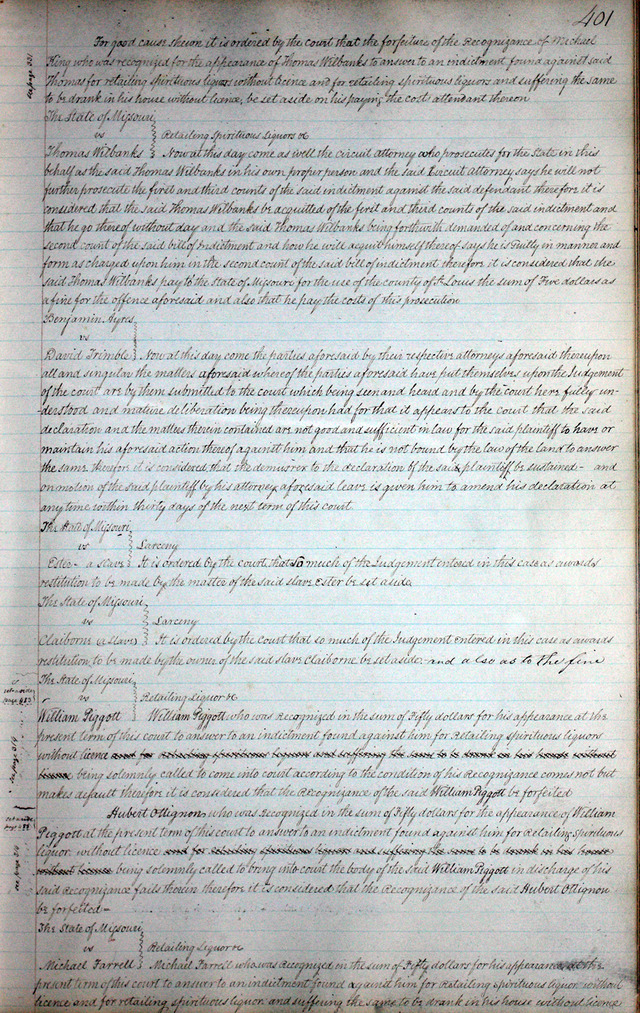 401
For good cause shewn it is ordered by the court that the forfeiture of the Recognizance of Michael
King who was recognized for the appearance of Thomas Wilbanks to answer to an indictment found against said
Thomas for retailing spirituous liquors without licence and for retailing spirituous liquors and suffering the same
to be drank in his house without licence, be set aside on his paying the costs attendant thereon
The State of Missouri
vs Retailing Spirituous Liquors &c
Thomas Wilbanks Now at this day come as well the circuit attorney who prosecutes for the State in this
behalf as the said Thomas Wilbanks in his own proper person and the said Circuit attorney says he will not
further prosecute the first and third counts of the said indictment against the said defendant therefore it is
considered that the said Thomas Wilbanks be acquitted of the first and third counts of the said indictment and
that he go thereof without day and the said Thomas Wilbanks being forthwith demanded of and concerning the
second count of the said bill of Indictment and how he will acquit himself thereof says he is Guilty in manner and
form as charged upon him in the second count of the said bill of indictment therefore it is considered that the
said Thomas Wilbanks pay to the State of Missouri for the use of the county of St Louis the sum of Five dollars as
a fine for the offence aforesaid and also that he pay the costs of this prosecution
Benjamin Ayres
vs
David Trimble Now at this day come the parties aforesaid by their respective attorneys aforesaid thereupon
all and singular the matters aforesaid whereof the parties aforesaid have put themselves upon the Judgement
of the court are by them submitted to the court which being seen and heard and by the court here fully un-
-derstood and mature deliberation being thereupon had for that it appears to the court that the said
declaration and the matters therein contained are not good and sufficient in law for the said plaintiff to have or
maintain his aforesaid action thereof against him and that he is not bound by the law of the land to answer
the same therefore it is considered that the demurrer to the declaration of the said plaintiff be sustained - and
on motion of the said plaintiff by his attorney aforesaid leave is given him to amend his declaration at
any time within thirty days of the next term of this court
The State of Missouri
vs Larceny
Ester - a slave It is ordered by the court that so much of the Judgement entered in this case as awards
restitution to be made by the master of the said slave Ester be set aside
The State of Missouri
vs Larceny
Claiborne (a slave) It is ordered by the court that so much of the Judgement entered in this case as awards
restitution to be made by the owner of the said slave Claiborne be set aside - and also as to the fine
The State of Missouri
vs Retailing Liquor &c
William Piggott William Piggott who was Recognized in the sum of Fifty dollars for his appearance at the
present term of this court to answer to an indictment found against him for Retailing spirituous liquors
without licence and for retailing spirituous liquors and suffering the same to be drank in his house without
licence being solemnly called to come into court according to the condition of his Recognizance comes not but
makes default therefore it is considered that the Recognizance of the said William Piggott be forfeited
Hubert Ottignon who was recognized in the sum of Fifty dollars for the appearance of William
Piggott at the present term of this court to answer to an indictment found against him for Retailing Spirituous
liquor without licence and for retailing spirituous liquors and suffering the same to be drank in his house
without licence being solemnly called to bring into court the body of the said William Piggott in discharge of his
said Recognizance fails therein therefore it is considered that the Recognizance of the said Hubert Ottignon
be forfeited -
The State of Missouri
vs Retailing Liquor &c
Michael Farrell Michael Farrell who was Recognized in the sum of Fifty dollars for his appearance at the
present term of this court to answer to an indictment found against him for Retailing spirituous liquor without
licence and for retailing spirituous liquor and suffering the same to be drank in his house without licence